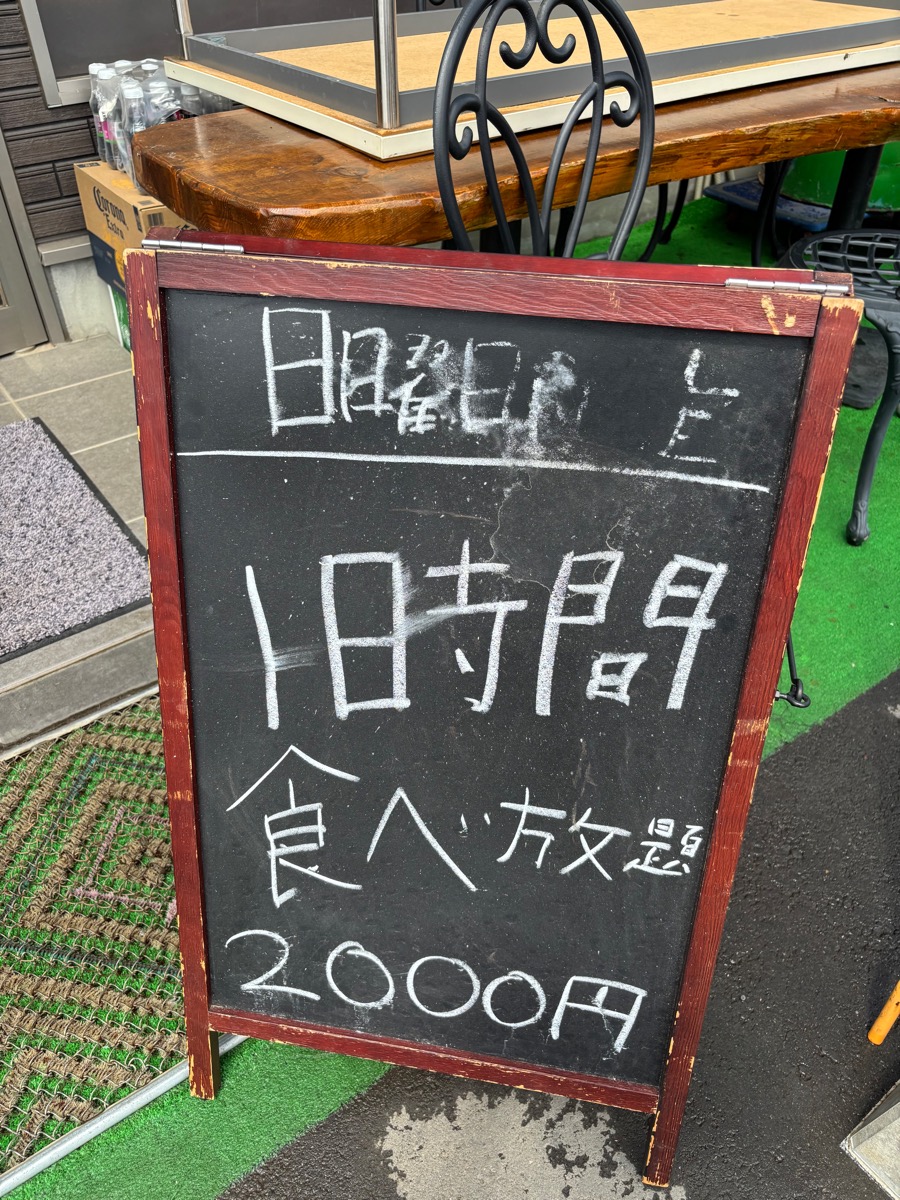 日曜日
1時間
食べ放題
2000円
Corona
Extra